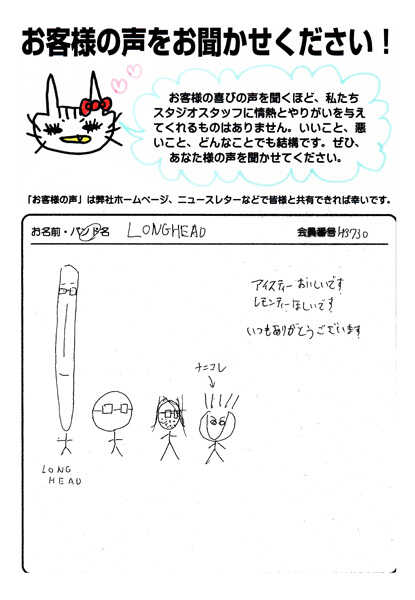 お客様の声をお聞かせください！
お客様の喜びの声を聞くほど、私たち
スタジオスタッフに情熱とやりがいを与え
てくれるものはありません。いいこと、悪
いこと、どんなことでも結構です。ぜひ、
あなた様の声を聞かせてください。
「お客様の声」は弊社ホームページ、ニュースレターなどで皆様と共有できれば幸いです。
お名前・バンド名 LONGHEAD 会員番号 43730
アイスティーおいしいです
レモンティーほしいです
いつもありがとうございます
ナニコレ
LONG
HEAD